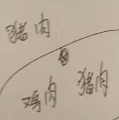 猪肉
鸡肉 猪肉